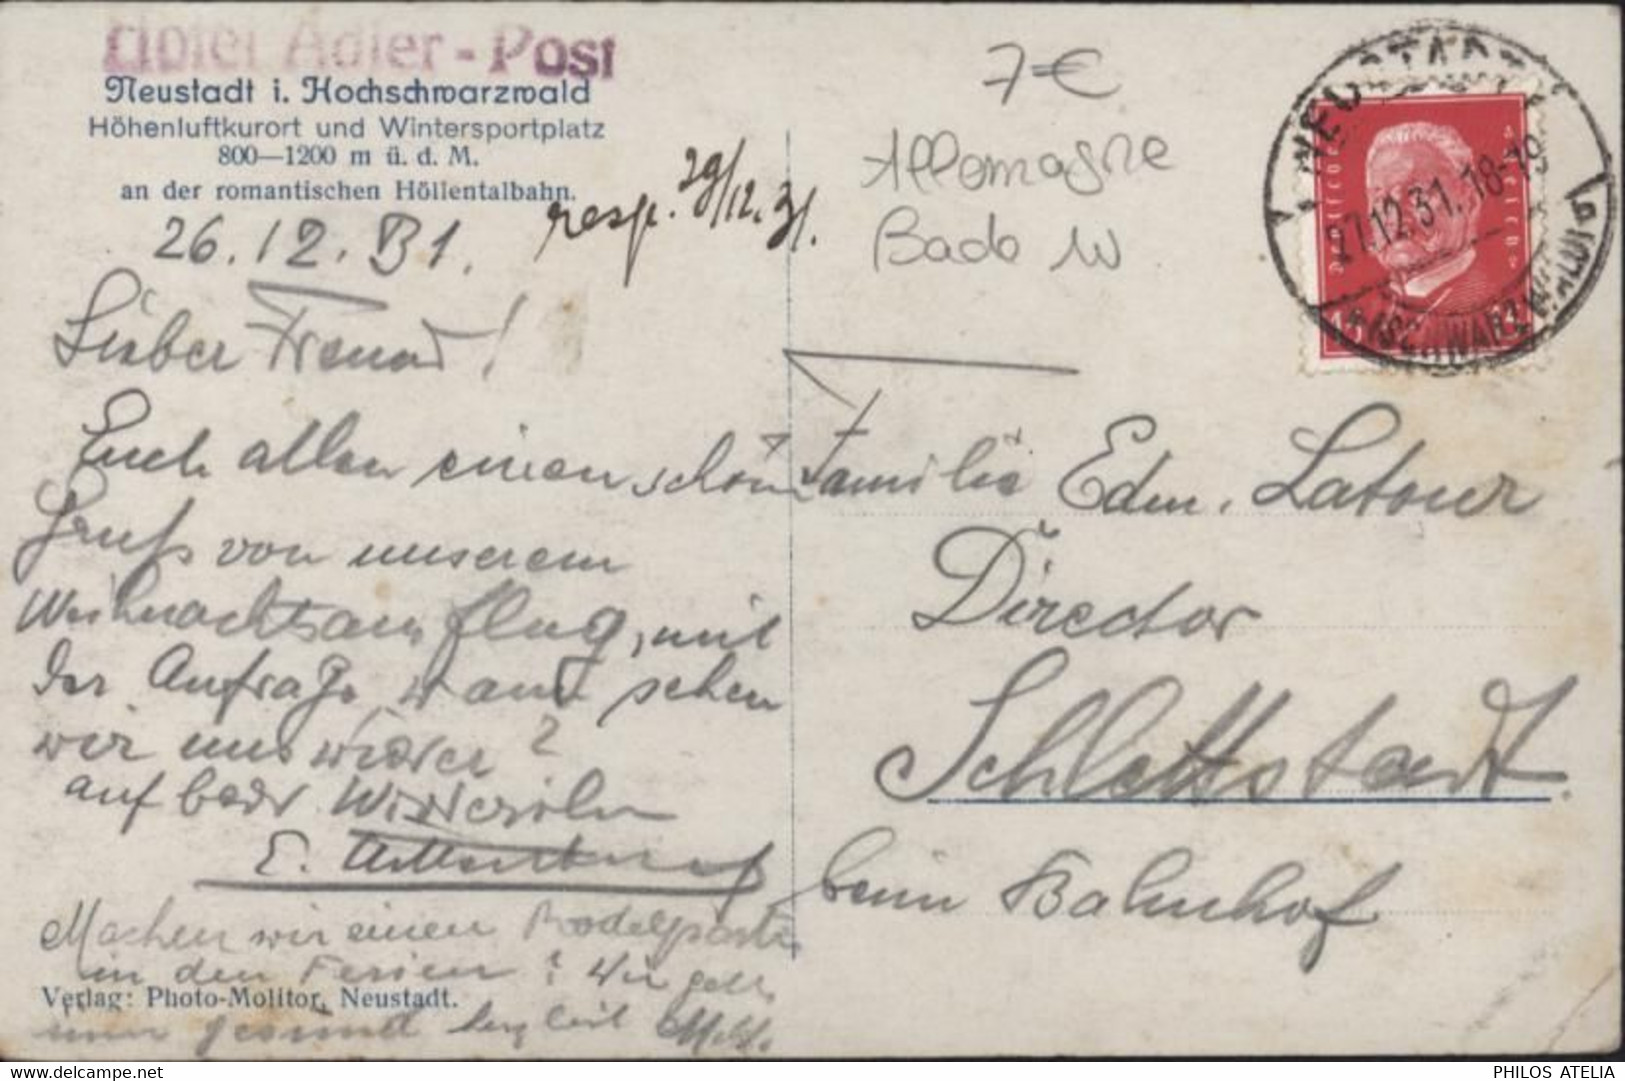 Hotel Adler-Post
Neustadt i. Hochschwarzwald
Höhenluftkurort und Wintersportplatz
800—1200 m ü. d. M.
an der romantischen Höllentalbahn.
26.12.31.
resp. 29/12.31.
7€
Allemagne
Bade W
NEUSTADT
27.12.31.18-19
(SCHWARZWALD)
Lieber Freund!
Euch allen einen schön
Gruß von unserem
Weihnachtsausflug, mit
der Anfrage wann sehen
wir uns wieder?
auf bald
E.
Machen wir einen Rodelpartie
in den Ferien? Wir
Verlag: Photo-Molitor, Neustadt.
gesund
Familie Edm. Latour
Director
Schlettstadt.
beim Bahnhof
PHILOS ATELIA